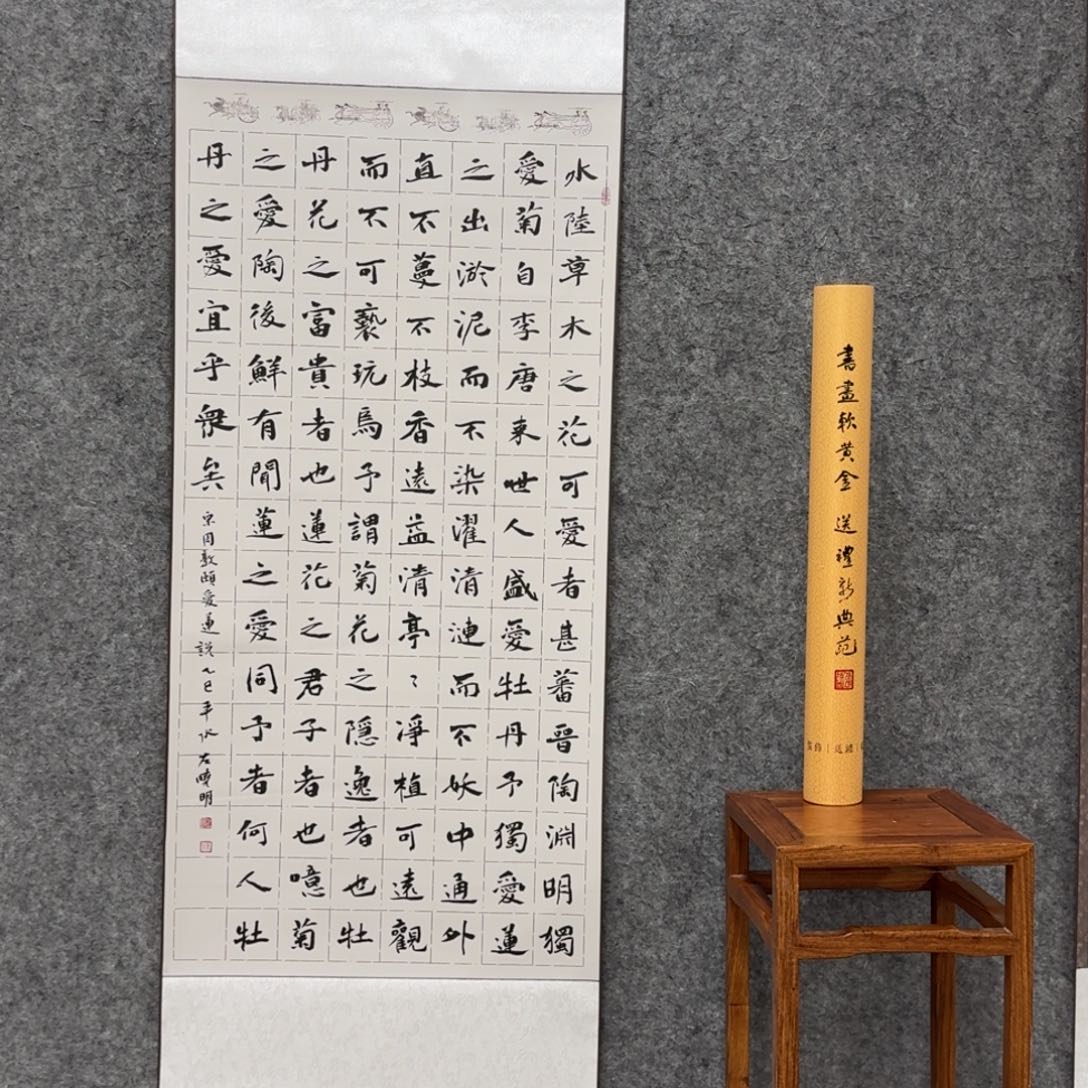 水陸草木之花可愛者甚蕃晉陶淵明獨
愛菊自李唐来世人盛愛牡丹予獨愛蓮
之出淤泥而不染濯清漣而不妖中通外
直不蔓不枝香遠益清亭々淨植可遠觀
而不可褻玩焉予謂菊花之隱逸者也牡
丹花之富貴者也蓮花之君子者也噫菊
之愛陶後鮮有聞蓮之愛同予者何人牡
丹之愛宜乎衆矣
宋周敦頤愛蓮說乙巳年秋左曉明
書畫軟黄金 送禮新典范